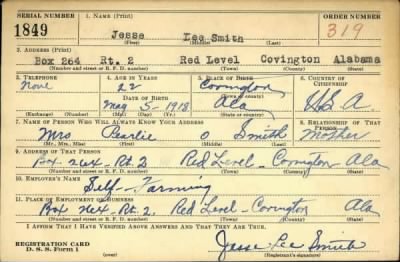 SERIAL NUMBER 1. NAME (Print) ORDER NUMBER
1849 Jesse Lee Smith 319
(First) (Middle) (Last)
3. ADDRESS (Print)
Box 264 Rt. 2 Red Level Covington Alabama
(Number and street or R. F. D. number) (Town) (County) (State)
3. TELEPHONE 4. AGE IN YEARS 5. PLACE OF BIRTH 6. COUNTRY OF CITIZENSHIP
None 22 Covington
DATE OF BIRTH (Town or county)
May 5- 1918 Ala U.S.A
(Exchange) (No.) (Mo.) (Day) (Yr.) (State or country)
7. NAME OF PERSON WHO WILL ALWAYS KNOW YOUR ADDRESS 8. RELATIONSHIP OF THAT PERSON
Mrs Pearlie O Smith Mother
(Mr., Mrs., Miss) (First) (Middle) (Last)
9. ADDRESS OF THAT PERSON
Box Rt. 2 Red Level - Covington - Ala
(Number and street or R. F. D. number) (Town) (County) (State)
10. EMPLOYER'S NAME
Self - Farming
11. PLACE OF EMPLOYMENT OR BUSINESS
Box Rt 2. Red Level - Covington Ala
(Number and street or R. F. D. number) (Town) (County) (State)
I AFFIRM THAT I HAVE VERIFIED ABOVE ANSWERS AND THAT THEY ARE TRUE.
REGISTRATION CARD Jesse Lee Smith
D. S. S. Form 1 (Registrant's signature)